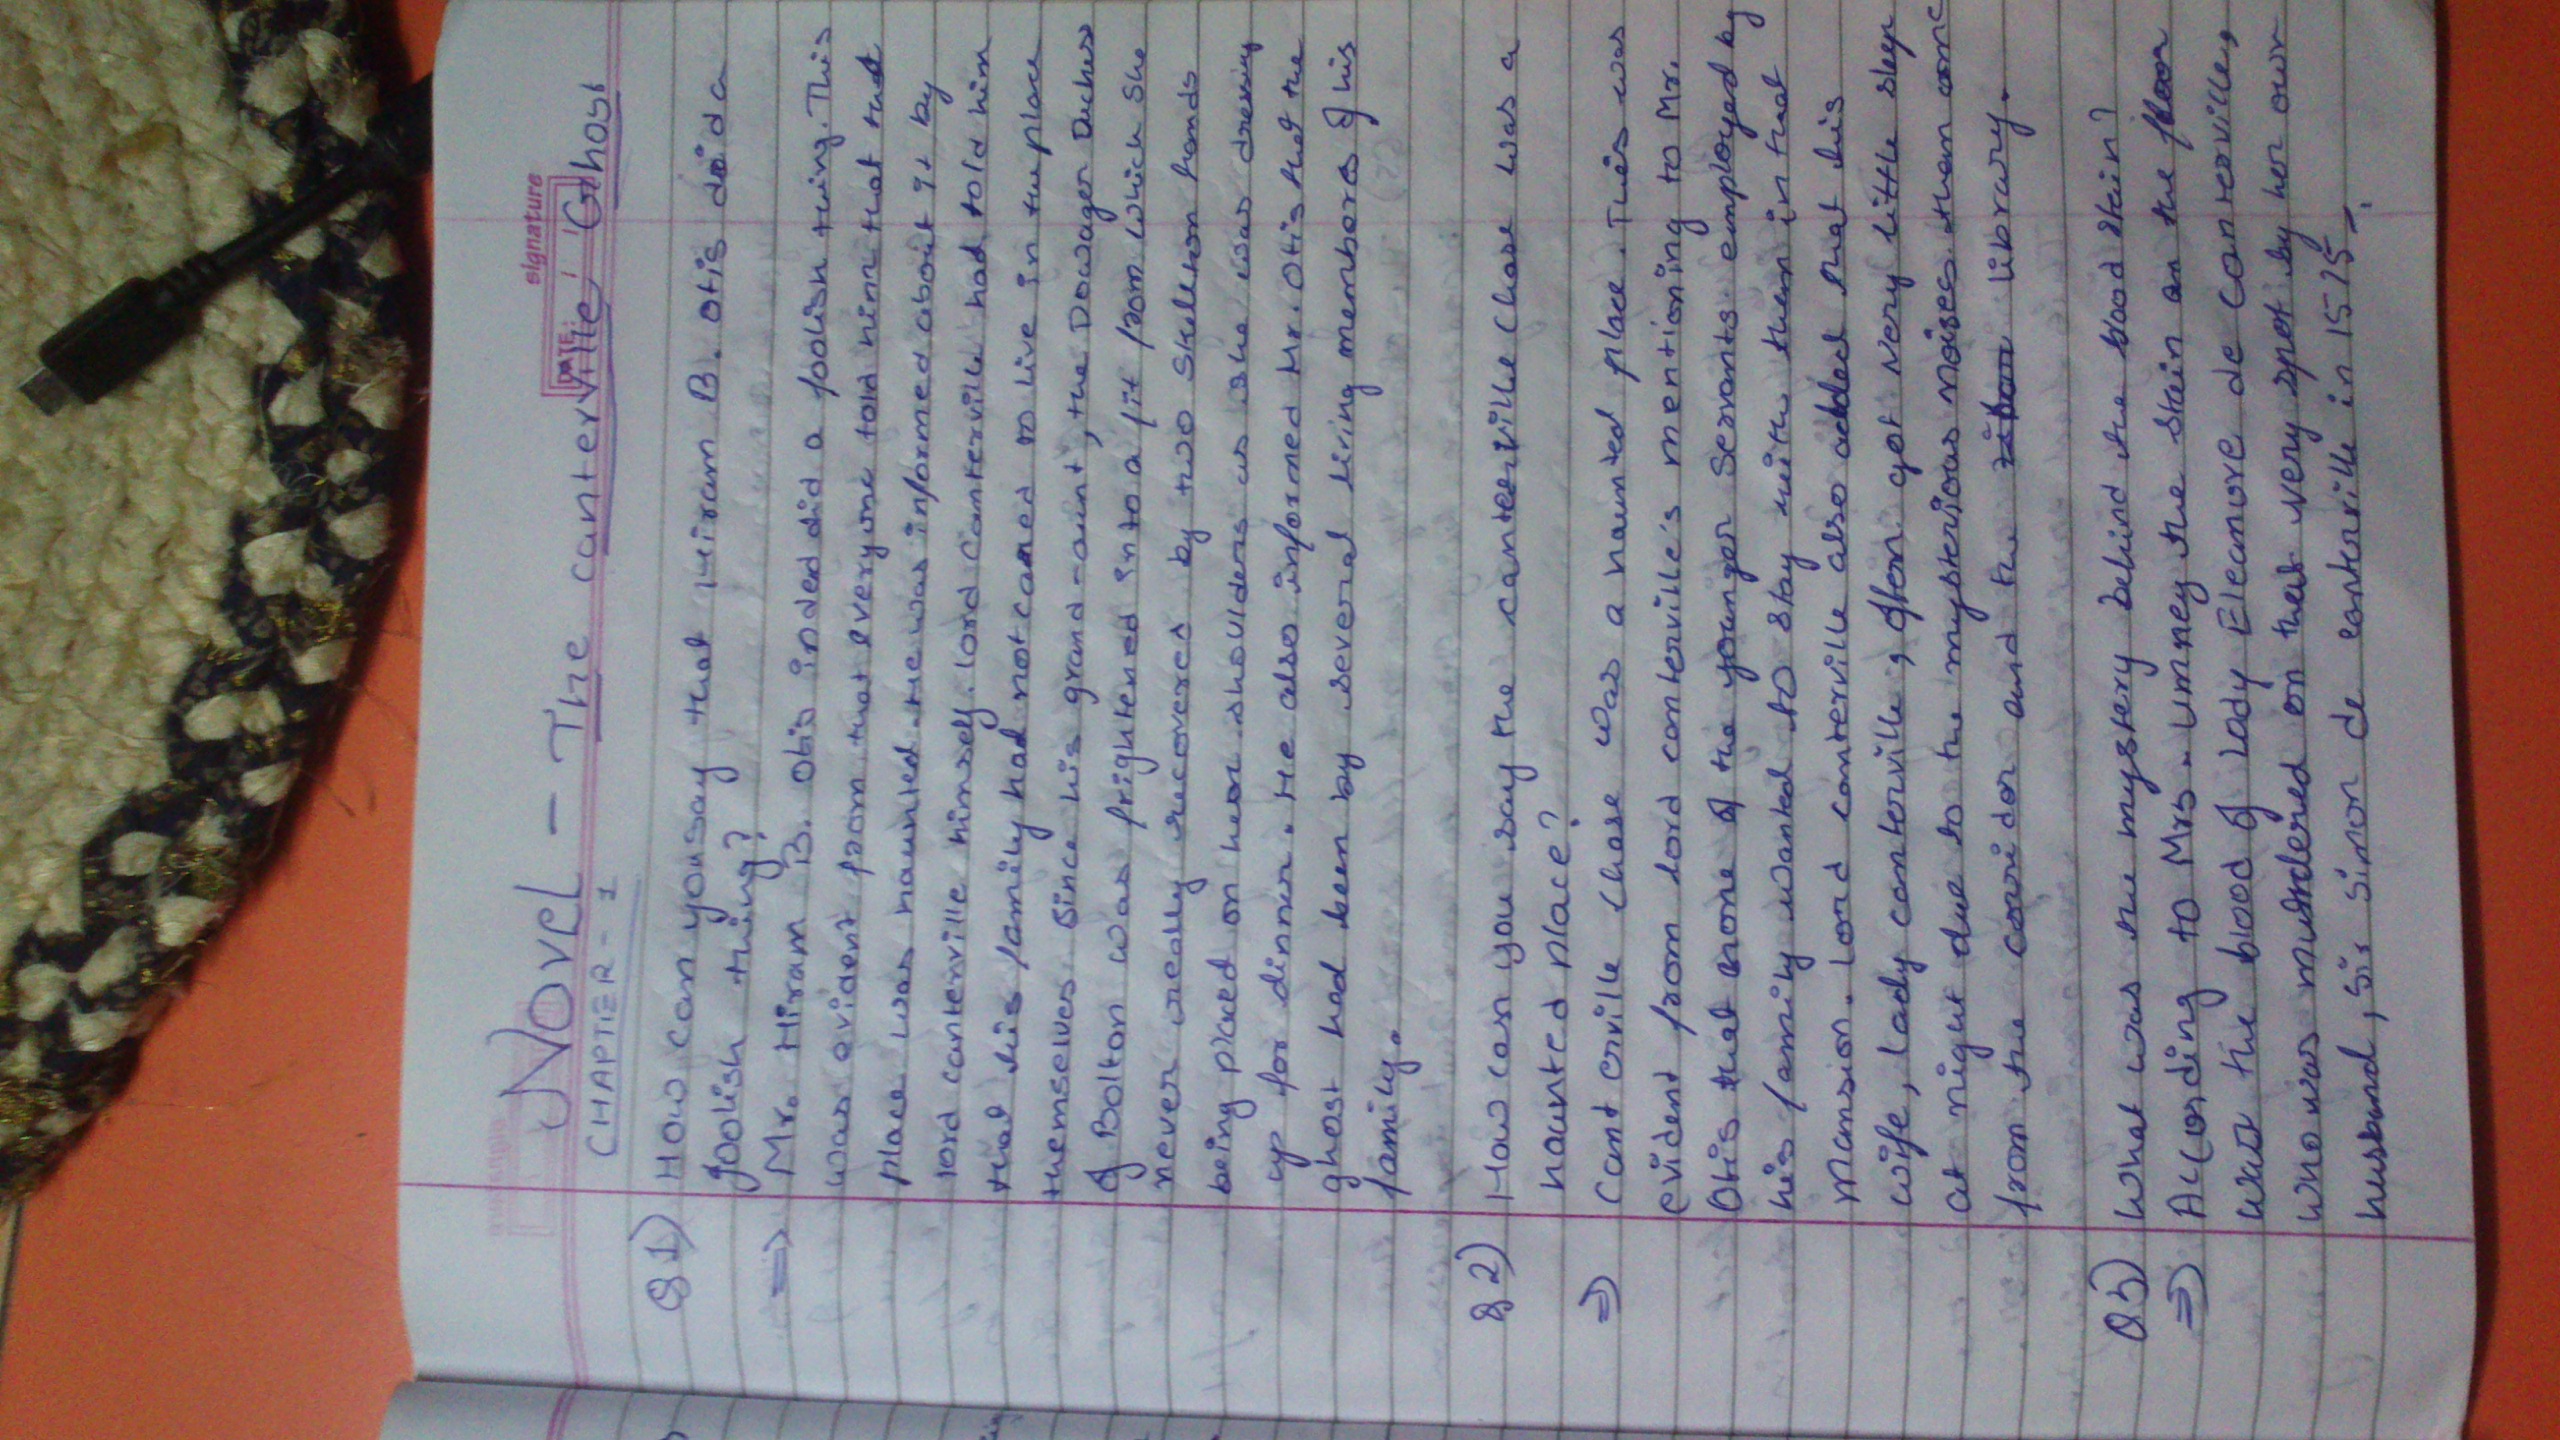 signature
DATE: / /
Novel - The canterville Ghost
CHAPTER - 1
Q1) How can you say that Hiram B. Otis did a
foolish thing?
⇒ Mr. Hiram B. Otis inded did a foolish thing. This
was evident from that everyone told him that that
place was haunted. He was informed about it by
lord canterville himself. lord Canterville had told him
that his family had not cared to live in the place
themselves since his grand-aunt, the Dowager Duchess
of Bolton was frightened into a fit from which she
never really recovered by two skeleton hands
being placed on her shoulders as she was dressing
up for dinner. He also informed Mr. Otis that the
ghost had been by several living members of his
family.
Q2) How can you say the canterville Chase was a
haunted place?
⇒ Canterville Chase was a haunted place. This was
evident from lord canterville's mentioning to Mr.
Otis that none of the younger servants employed by
his family wanted to stay with them in that
mansion. Lord canterville also added that his
wife, lady canterville, often got very little sleep
at night due to the mysterious noises than come
from the corridor and the library.
Q3) What was the mystery behind the blood stain?
⇒ According to Mrs. Umney the stain on the floor
was the blood of Lady Eleanore de canterville,
who was murdered on that very spot by her own
husband, Sir Simon de canterville in 1575.